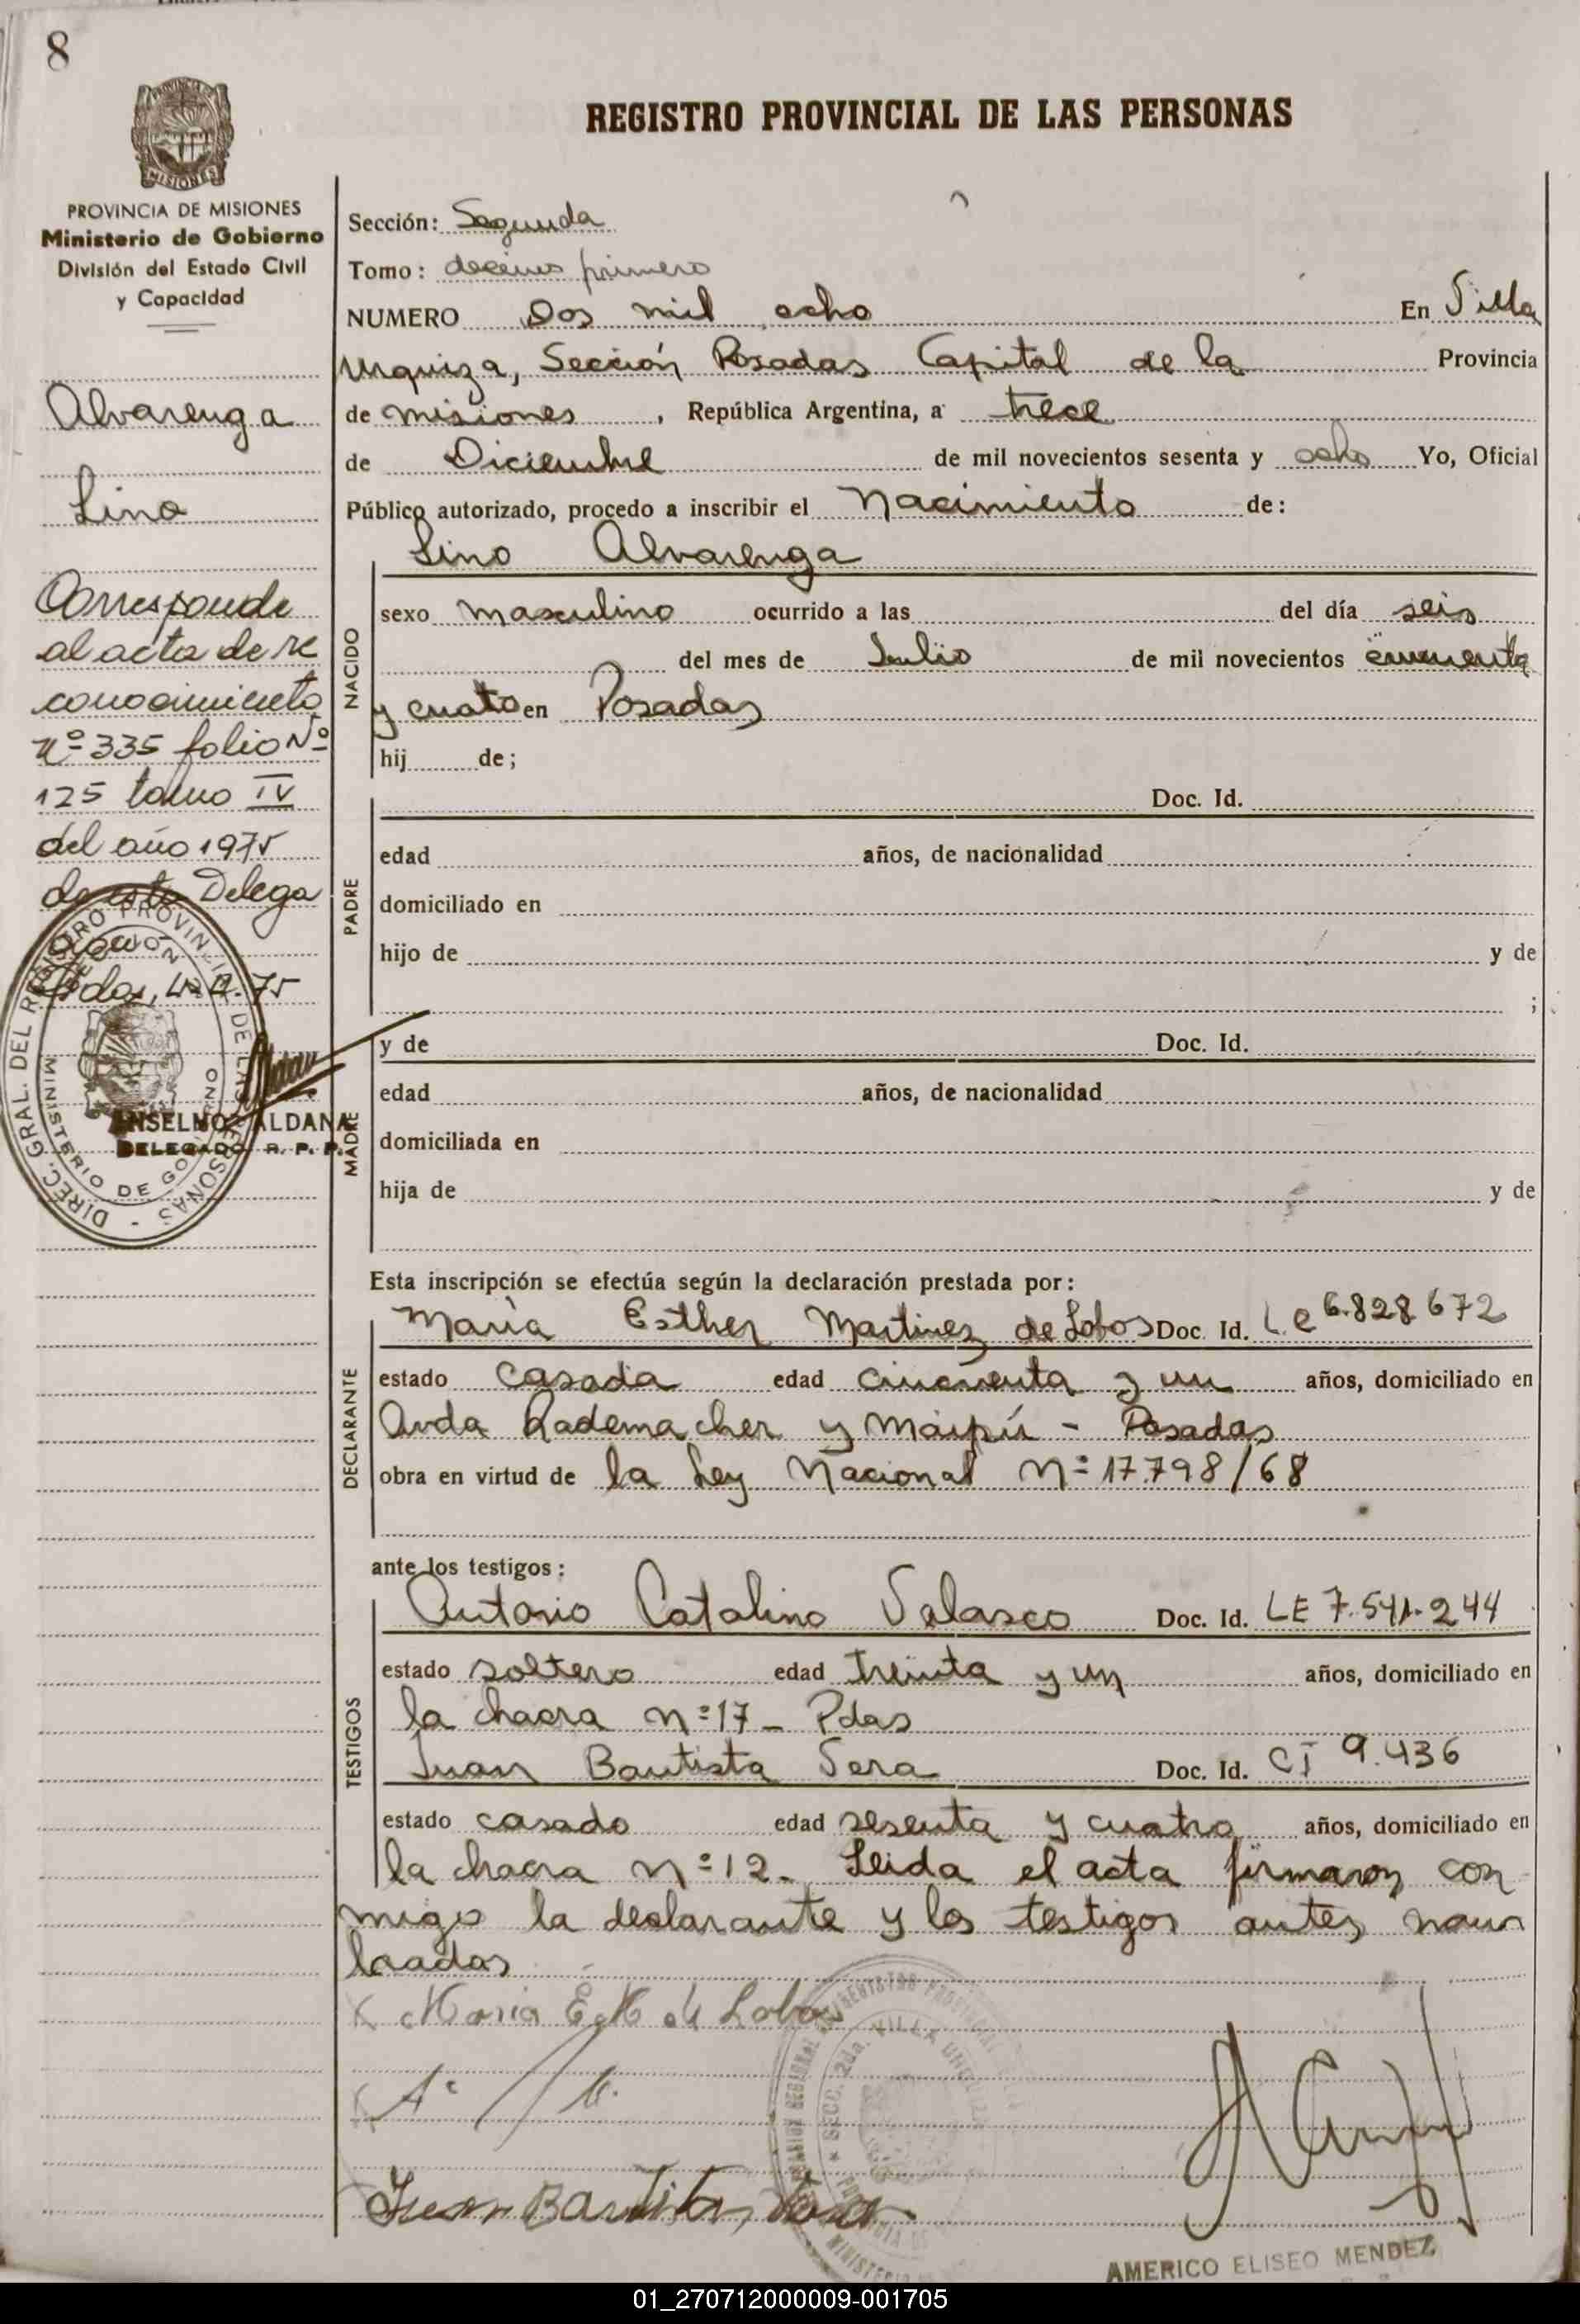 8
PROVINCIA DE MISIONES
Ministerio de Gobierno
División del Estado Civil
y Capacidad
Alvarenga
Lino
Corresponde
al acta de re
conocimiento
Nº 335 folio Nº
125 tomo IV
del año 1975
de esta Delega
ción
Pdas,
75
ANSELMO ALDANA
DELEGADO R. P. P.
DIREC. GRAL. DEL REGISTRO PROVINCIAL DE LAS PERSONAS -
MINISTERIO DE GOBIERNO
MISIONES
REGISTRO PROVINCIAL DE LAS PERSONAS
Sección: Segunda
Tomo: decimo primero
NUMERO Dos mil ocho En Villa
Urquiza, Sección Posadas Capital de la Provincia
de Misiones, República Argentina, a trece
de Diciembre de mil novecientos sesenta y ocho Yo, Oficial
Público autorizado, procedo a inscribir el Nacimiento de:
Lino Alvarenga
NACIDO
sexo masculino ocurrido a las del día seis
del mes de Julio de mil novecientos cincuenta
y cuatro en Posadas
hij de;
PADRE
Doc. Id.
edad años, de nacionalidad
domiciliado en
hijo de y de
;
MADRE
y de Doc. Id.
edad años, de nacionalidad
domiciliada en
hija de y de
Esta inscripción se efectúa según la declaración prestada por:
DECLARANTE
María Esther Martinez de Lobos Doc. Id. L.e 6.828672
estado casada edad cincuenta y un años, domiciliado en
Avda Rademacher y Maipú - Posadas
obra en virtud de la Ley Nacional Nº 17.798/68
ante los testigos:
TESTIGOS
Antonio Catalino Velasco Doc. Id. LE 7.541.244
estado soltero edad treinta y un años, domiciliado en
la chacra nº 17 - Pdas
Juan Bautista Vera Doc. Id. CI 9.436
estado casado edad sesenta y cuatro años, domiciliado en
la chacra nº 12. Leida el acta firmaron con
migo la declarante y los testigos antes nom
brados
Maria E. M. de Lobos
Juan Bautista Vera
SECC. 2da. VILLA URQUIZA
AMERICO ELISEO MENDEZ
01_270712000009-001705